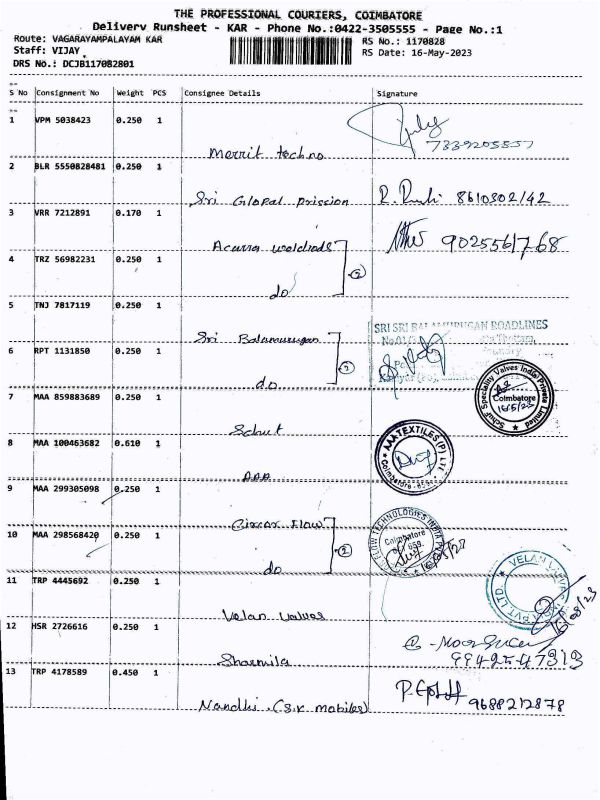 THE PROFESSIONAL COURIERS, COIMBATORE
Delivery Runsheet - KAR - Phone No.:0422-3505555 - Page No.:1
Route: VAGARAYAMPALAYAM KAR
RS No.: 1170828
Staff: VIJAY
RS Date: 16-May-2023
DRS No.: DCJB117082801
S No Consignment No Weight PCS Consignee Details Signature
1 VPM 5038423 0.250 1
7339205557
Merrit techno
2 BLR 5550828481 0.250 1
Sri Glopal prission 8610302142
3 VRR 7212891 0.170 1
Acurra weldrods 9025561768
4 TRZ 56982231 0.250 1
do (2)
5 TNJ 7817119 0.250 1
SRI SRI BALAMURUGAN ROADLINES
Sri Balamurugan
6 RPT 1131850 0.250 1
do (2)
7 MAA 859883689 0.250 1
Schuf Speciality Valves India Private Limited
Coimbatore
16/5/23
Schut
8 MAA 100463682 0.610 1
AAA TEXTILES (P) LTD
Coimbatore
AAA
9 MAA 299305098 0.250 1
Circor Flow
FLOW TECHNOLOGIES INDIA PVT
Coimbatore
10 MAA 298568420 0.250 1
do (2)
11 TRP 4445692 0.250 1
VELAN VALVES INDIA PVT. LTD.
Velan valves
12 HSR 2726616 0.250 1
Sharmila 9942547313
13 TRP 4178589 0.450 1
Nandhi (S.K mobiles) 9688212878